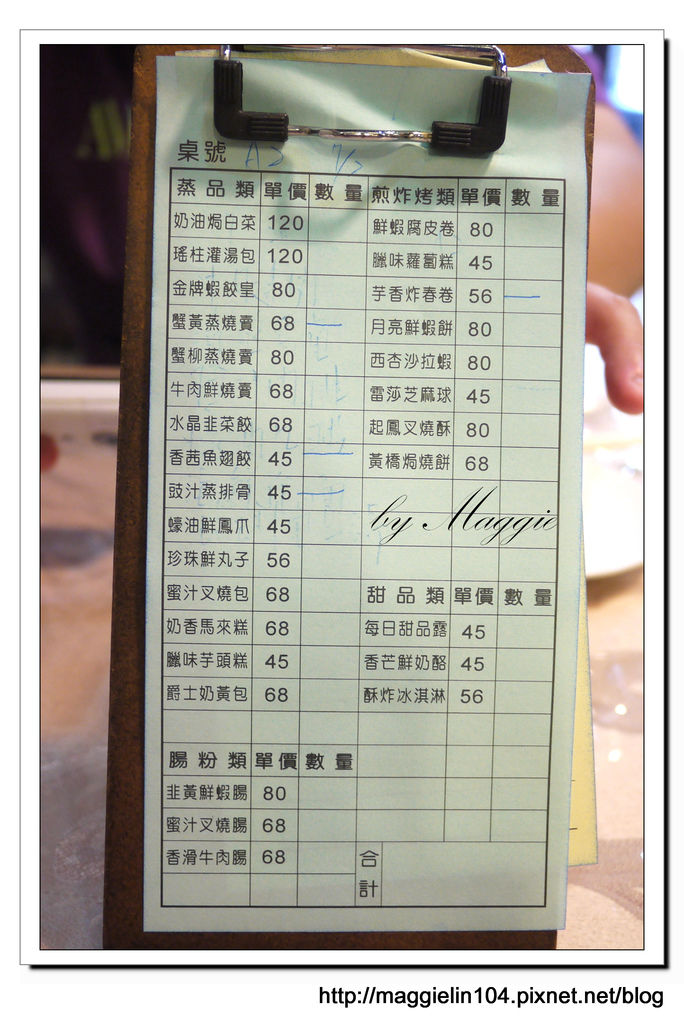 桌號 A2 1/2
蒸品類 單價 數量
奶油焗白菜 120
瑤柱灌湯包 120
金牌蝦餃皇 80
蟹黃蒸燒賣 68 一
蟹柳蒸燒賣 80
牛肉鮮燒賣 68
水晶韭菜餃 68
香茜魚翅餃 45 一
豉汁蒸排骨 45 一
蠔油鮮鳳爪 45
珍珠鮮丸子 56
蜜汁叉燒包 68
奶香馬來糕 68
臘味芋頭糕 45
爵士奶黃包 68
腸粉類 單價 數量
韭黃鮮蝦腸 80
蜜汁叉燒腸 68
香滑牛肉腸 68
煎炸烤類 單價 數量
鮮蝦腐皮卷 80
臘味蘿蔔糕 45
芋香炸春卷 56 一
月亮鮮蝦餅 80
西杏沙拉蝦 80
雷莎芝麻球 45
起鳳叉燒酥 80
黃橋焗燒餅 68
by Maggie
甜品類 單價 數量
每日甜品露 45
香芒鮮奶酪 45
酥炸冰淇淋 56
合計
http://maggielin104.pixnet.net/blog